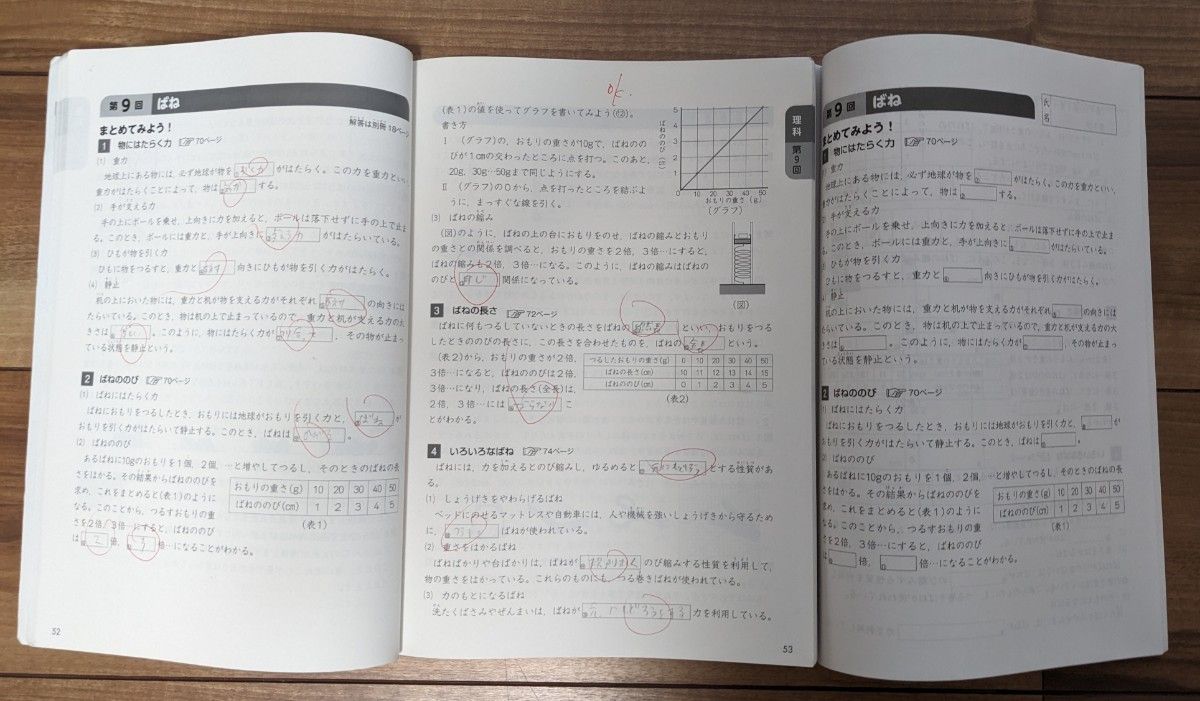 第9回 ばね
解答は別冊18ページ
まとめてみよう！
1 物にはたらく力 ☞70ページ
(1) 重力
地球上にある物には，必ず地球が物を 引く力 がはたらく。この力を重力といい，
重力がはたらくことによって，物は する。
(2) 手が支える力
手の上にボールを乗せ，上向きに力を加えると，ボールは落下せずに手の上で止ま
る。このとき，ボールには重力と，手が上向きに 支える力 がはたらいている。
(3) ひもが物を引く力
ひもに物をつるすと，重力と 反対 向きにひもが物を引く力がはたらく。
(4) 静止
机の上においた物には，重力と机が物を支える力がそれぞれ 反対 の向きには
たらいている。このとき，物は机の上で止まっているので，重力と机が支える力の大
きさは 等しい 。このように，物にはたらく力が ，その物が止まっ
ている状態を静止という。
2 ばねののび ☞70ページ
(1) ばねにはたらく力
ばねにおもりをつるしたとき，おもりには地球がおもりを引く力と， が
おもりを引く力がはたらいて静止する。このとき，ばねは 。
(2) ばねののび
あるばねに10gのおもりを1個，2個，…と増やしてつるし，そのときのばねの長
さをはかる。その結果からばねののびを
求め，これをまとめると(表1)のように
なる。このことから，つるすおもりの重
さを2倍，3倍…にすると，ばねののび
は 2 倍， 3 倍…になることがわかる。
おもりの重さ(g) 10 20 30 40 50
ばねののび(cm) 1 2 3 4 5
(表1)
52
ok
(表1)の値を使ってグラフを書いてみよう(⑫)。
書き方
Ⅰ (グラフ)の，おもりの重さが10gで，ばねのの
びが1cmの交わったところに点を打つ。このあと，
20g，30g…50gまで同じようにする。
Ⅱ (グラフ)の0から，点を打ったところを結ぶよ
うに，まっすぐな線を引く。
ばねののび(cm)
5
4
3
2
1
0 10 20 30 40 50
おもりの重さ(g)
(グラフ)
(3) ばねの縮み
(図)のように，ばねの上の台におもりをのせ，ばねの縮みとおもり
の重さとの関係を調べると，おもりの重さを2倍，3倍…にすると，
ばねの縮みも2倍，3倍…になる。このように，ばねの縮みはばねの
のびと 同じ 関係になっている。
(図)
3 ばねの長さ ☞72ページ
ばねに何もつるしていないときの長さをばねの 自然長 といい，おもりをつる
したときののびの長さに，この長さを合わせたものを，ばねの 全長 という。
(表2)から，おもりの重さが2倍，
3倍…になると，ばねののびは2倍，
3倍…になり，ばねの長さ(全長)は，
2倍，3倍…には ならない こ
とがわかる。
つるしたおもりの重さ(g) 0 10 20 30 40 50
ばねの長さ(cm) 10 11 12 13 14 15
ばねののび(cm) 0 1 2 3 4 5
(表2)
4 いろいろなばね ☞74ページ
ばねには，力を加えるとのび縮みし，ゆるめると とする性質があ
る。
(1) しょうげきをやわらげるばね
ベッドにのせるマットレスや自動車には，人や機械を強いしょうげきから守るため
に， ばねが使われている。
(2) 重さをはかるばね
ばねばかりや台ばかりは，ばねが 規則正しく のび縮みする性質を利用して，
物の重さをはかっている。これらのものにも，つる巻きばねが使われている。
(3) 力のもとになるばね
洗たくばさみやぜんまいは，ばねが 元にもどろうとする 力を利用している。
53
理科 第9回
第9回 ばね
氏名
まとめてみよう！
1 物にはたらく力 ☞70ページ
重力
地球上にある物には，必ず地球が物を がはたらく。この力を重力といい，
重力がはたらくことによって，物は する。
手が支える力
手の上にボールを乗せ，上向きに力を加えると，ボールは落下せずに手の上で止ま
る。このとき，ボールには重力と，手が上向きに がはたらいている。
ひもが物を引く力
ひもに物をつるすと，重力と 向きにひもが物を引く力がはたらく。
静止
机の上においた物には，重力と机が物を支える力がそれぞれ の向きには
たらいている。このとき，物は机の上で止まっているので，重力と机が支える力の大
きさは 。このように，物にはたらく力が ，その物が止まっ
ている状態を静止という。
2 ばねののび ☞70ページ
ばねにはたらく力
ばねにおもりをつるしたとき，おもりには地球がおもりを引く力と， が
おもりを引く力がはたらいて静止する。このとき，ばねは 。
ばねののび
あるばねに10gのおもりを1個，2個，…と増やしてつるし，そのときのばねの長
さをはかる。その結果からばねののびを
求め，これをまとめると(表1)のように
なる。このことから，つるすおもりの重
さを2倍，3倍…にすると，ばねののび
は 倍， 倍…になることがわかる。
おもりの重さ(g) 10 20 30 40 50
ばねののび(cm) 1 2 3 4 5
(表1)